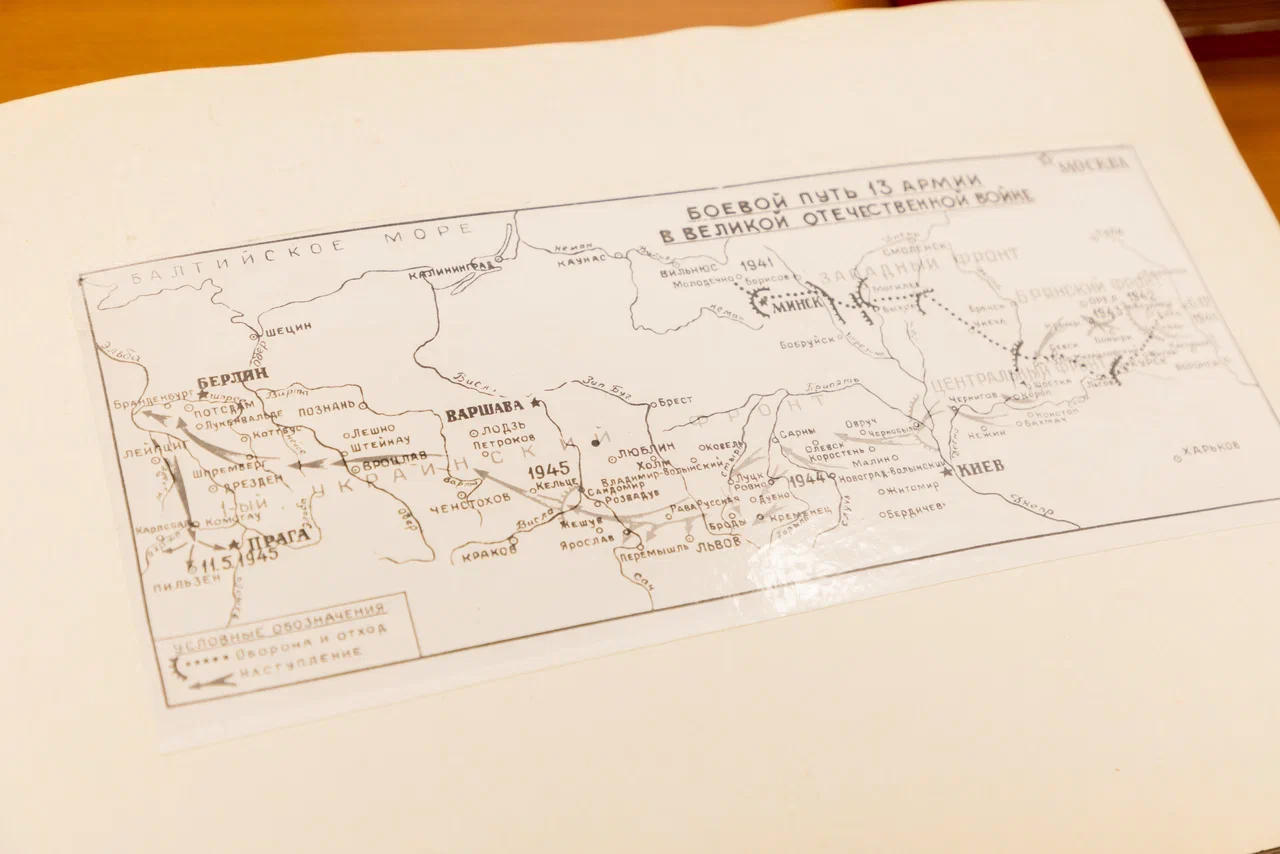 МОСКВА
БОЕВОЙ ПУТЬ 13 АРМИИ
В ВЕЛИКОЙ ОТЕЧЕСТВЕННОЙ ВОЙНЕ
БАЛТИЙСКОЕ МОРЕ
КАЛИНИНГРАД
Неман
КАУНАС
ВИЛЬНЮС
1941
Молодечно
Борисов
СМОЛЕНСК
ЗАПАДНЫЙ ФРОНТ
МИНСК
Могилев
Неман
Бобруйск
БРЯНСКИЙ ФРОНТ
Брянск
ОРЕЛ
1943
1942
КУРСК
Льгов
ВОРОНЕЖ
ЦЕНТРАЛЬНЫЙ
ЩЕЦИН
Эльба
Одер
БЕРЛИН
Бранденбург
ПОТСДАМ
Лукенвальде
Котбус
Варта
ПОЗНАНЬ
Висл.
ВАРШАВА
Зап. Буг
Брест
Припять
ФРОНТ
ЛЕЙПЦИГ
Шпремберг
ДРЕЗДЕН
ЛЕШНО
ШТЕЙНАУ
ВРОЦЛАВ
ЛОДЗЬ
ПЕТРОКОВ
1-ЫЙ УКРАИНСКИЙ
ЛЮБЛИН
ХОЛМ
Владимир-Волынский
КОВЕЛЬ
ЛУЦК
РОВНО
ДУБНО
КРЕМЕНЕЦ
САРНЫ
ОВРУЧ
Чернобыль
ОЛЕВСК
Коростень
МАЛИНО
1944
Новоград-Волынский
ЖИТОМИР
БЕРДИЧЕВ
КИЕВ
Днепр
ЧЕРНИГОВ
НЕЖИН
Конотоп
Бахмач
Короп
ХАРЬКОВ
1945
КЕЛЬЦЕ
Сандомир
РОЗВАДУВ
РАВА РУССКАЯ
БРОДЫ
ЧЕНСТОХОВ
Варта
Висла
КРАКОВ
ЖЕШУВ
ЯРОСЛАВ
ПЕРЕМЫШЛЬ
ЛЬВОВ
Сан
Одер
Комотау
ПРАГА
11.5.1945
ПИЛЬЗЕН
УСЛОВНЫЕ ОБОЗНАЧЕНИЯ
Оборона и отход
НАСТУПЛЕНИЕ